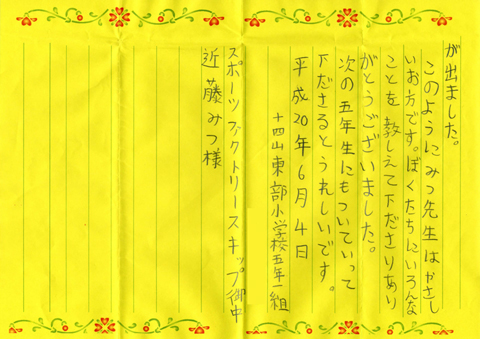 が出ました。
このようにみつ先生はやさし
いお方です。ぼくたちにいろんな
ことを教しえて下ださりあり
がとうございました。
次の五年生にもついていって
下ださるとうれしいです。
平成20年6月4日
十四山東部小学校五年一組
スポーツファクトリースキップ御中
近藤みつ様